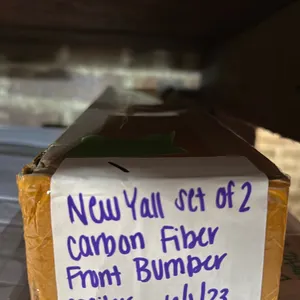 New Yall set of 2
carbon Fiber
Front Bumper